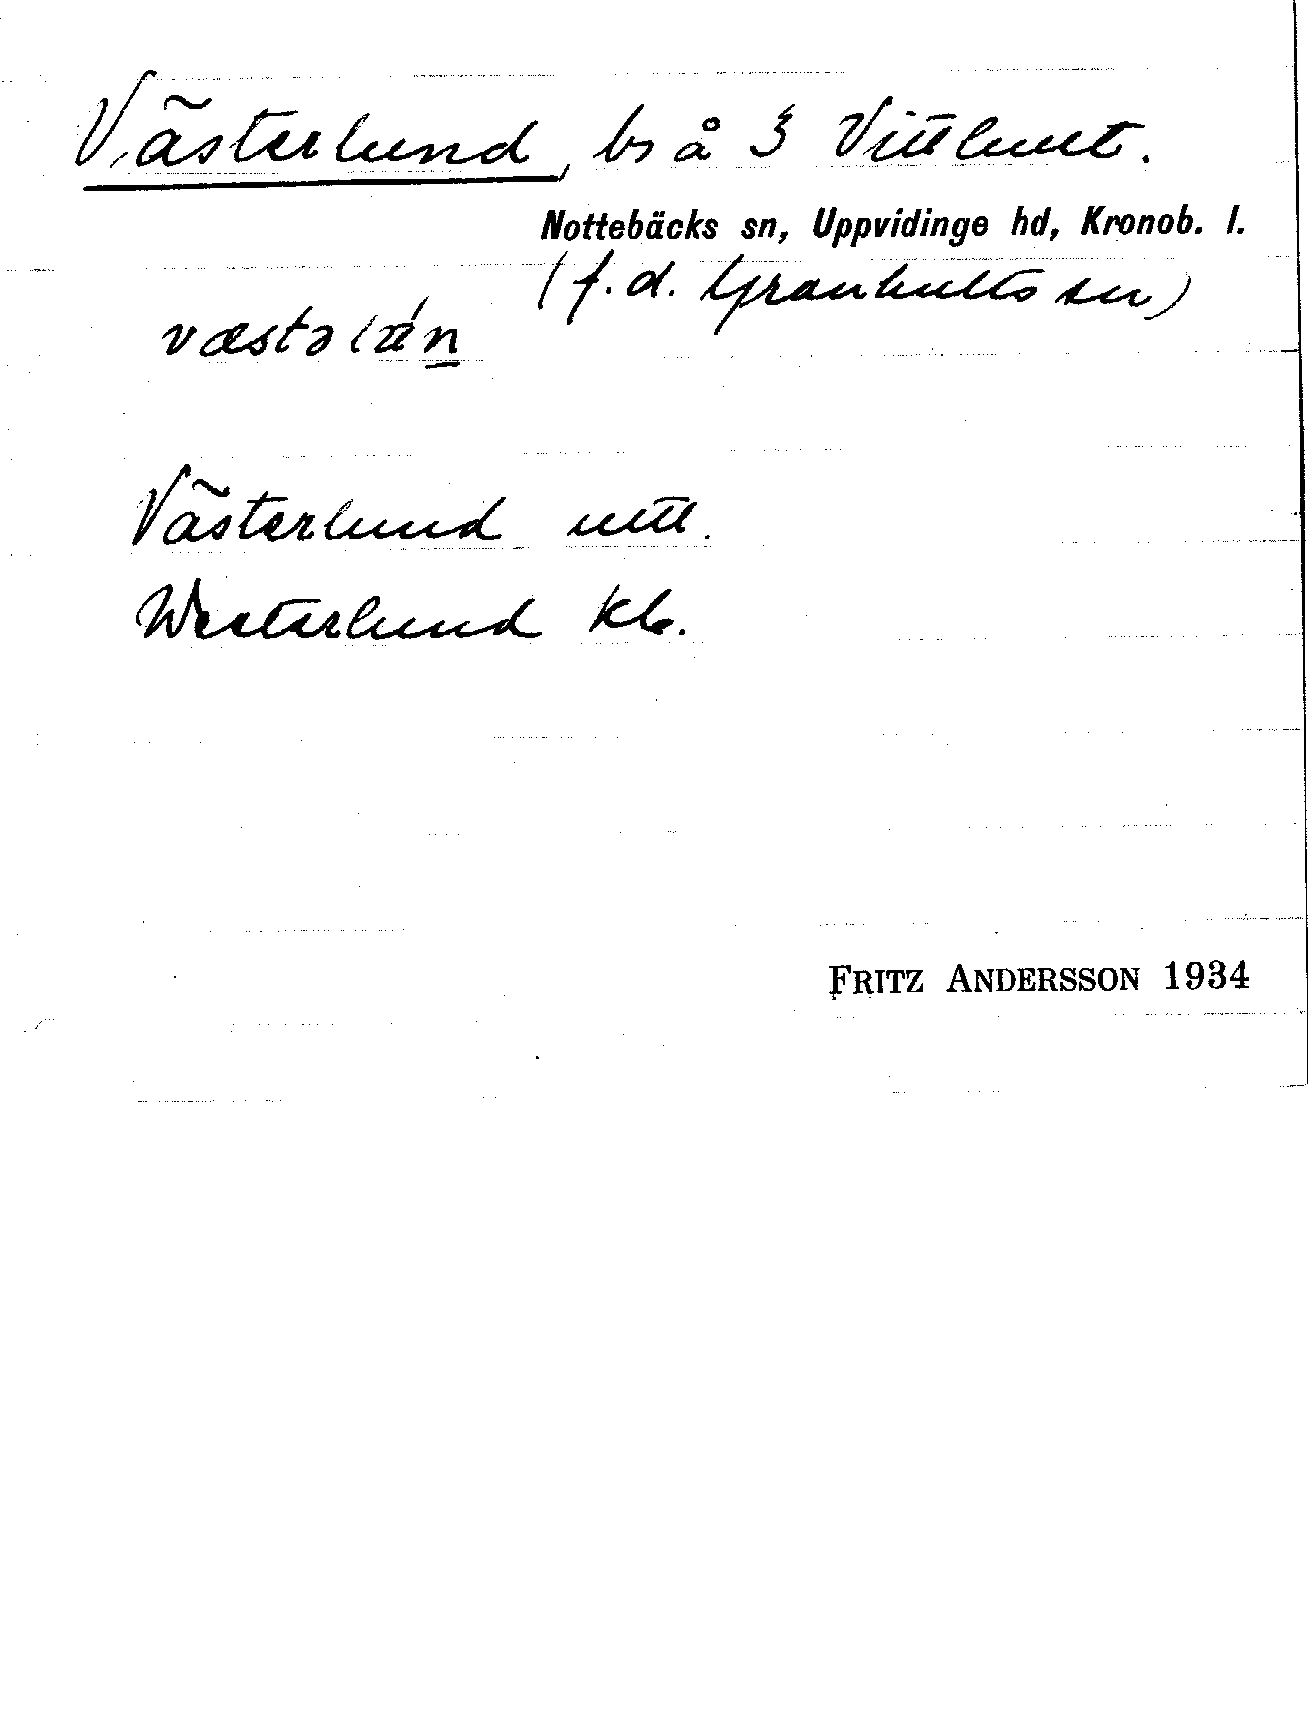 Västerlund, bs å § Vitthult.
Nottebäcks sn, Uppvidinge hd, Kronob. l.
(f.d. Granhults sn)
Västerlund uttl.
Westerlund kb.
FRITZ ANDERSSON 1934